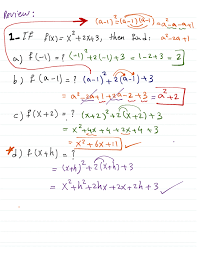 Review:
(a-1)²=(a-1)(a-1)=a²-a-a+1
=a²-2a+1
1- If f(x)=x²+2x+3, then find:
a) f(-1)=? (-1)²+2(-1)+3=1-2+3=2
b) f(a-1)=? (a-1)²+2(a-1)+3
=a²-2a+1+2a-2+3=a²+2
c) f(x+2)=? (x+2)²+2(x+2)+3
=x²+4x+4+2x+4+3
=x²+6x+11
*d) f(x+h)=?
=(x+h)²+2(x+h)+3
=x²+h²+2hx+2x+2h+3